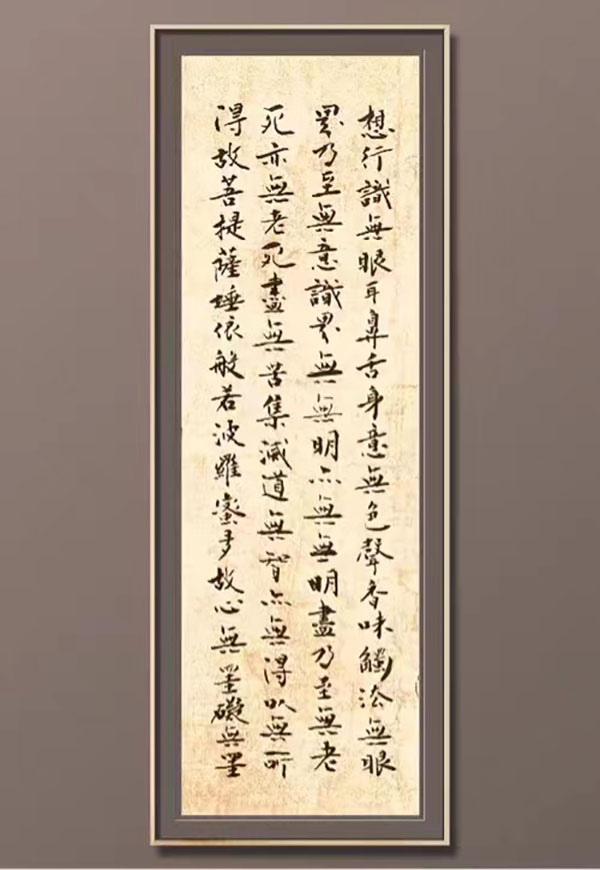 想行識無眼耳鼻舌身意無色聲香味觸法無眼
界乃至無意識界無無明亦無無明盡乃至無老
死亦無老死盡無苦集滅道無智亦無得以無所
得故菩提薩埵依般若波羅蜜多故心無罣礙無罣